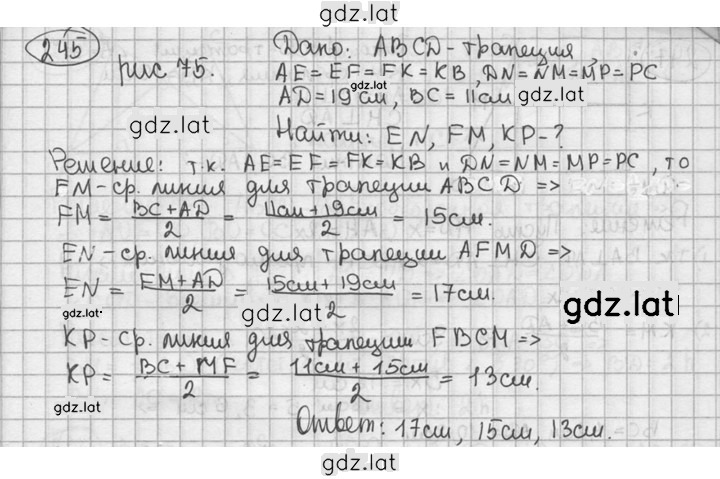 gdz.lat
245
рис 75.
Дано: ABCD - трапеция,
AE = EF = FK = KB, DN = NM = MP = PC
gdz.lat
AD = 19 см, BC = 11 см
gdz.lat
gdz.lat
Найти: EN, FM, KP - ?
Решение: т.к. AE = EF = FK = KB и DN = NM = MP = PC, то
FM - ср. линия для трапеции ABCD =>
FM = BC + AD / 2 = 11 см + 19 см / 2 = 15 см.
EN - ср. линия для трапеции AFMD =>
EN = EM + AD / 2 = 15 см + 19 см / 2 = 17 см.
gdz.lat
gdz.lat
gdz.lat
KP - ср. линия для трапеции FBCM =>
KP = BC + MF / 2 = 11 см + 15 см / 2 = 13 см.
gdz.lat
Ответ: 17 см, 15 см, 13 см.
gdz.lat